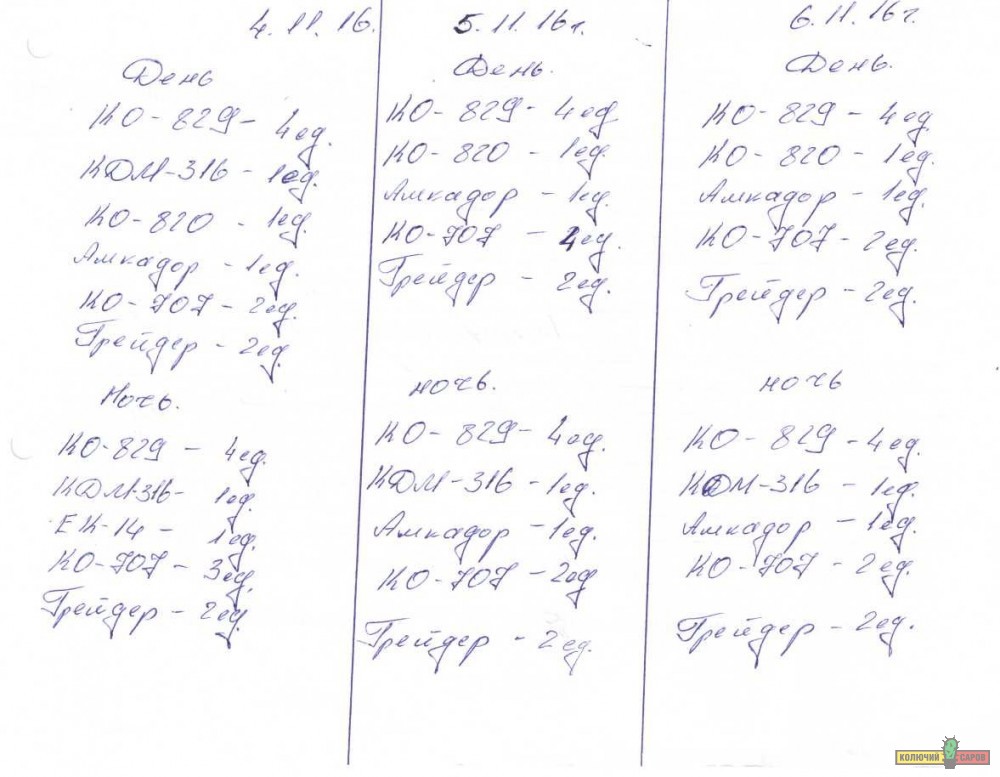 4.11.16.
День
КО-829- 4ед.
КДМ-316 - 1ед.
КО-820 - 1ед.
Амкадор - 1ед.
КО-707 - 2ед.
Грейдер - 2ед.
Ночь.
КО-829 - 4ед.
КДМ-316- 1ед.
ЕК-14 - 1ед.
КО-707 - 3ед.
Грейдер - 2ед.
5.11.16г.
День.
КО-829- 4ед
КО-820 - 1ед.
Амкадор - 1ед.
КО-707 - 4ед.
Грейдер - 2ед.
ночь.
КО-829- 4ед.
КДМ-316 - 1ед.
Амкадор - 1ед.
КО-707 - 2ед
Грейдер - 2ед.
6.11.16г.
День.
КО-829 - 4ед.
КО-820 - 1ед.
Амкадор - 1ед.
КО-707 - 2ед.
Грейдер - 2ед.
ночь
КО-829 - 4ед.
КДМ-316 - 1ед.
Амкадор - 1ед.
КО-707 - 2ед.
Грейдер - 2ед.
КОЛЮЧИЙ САРОВ